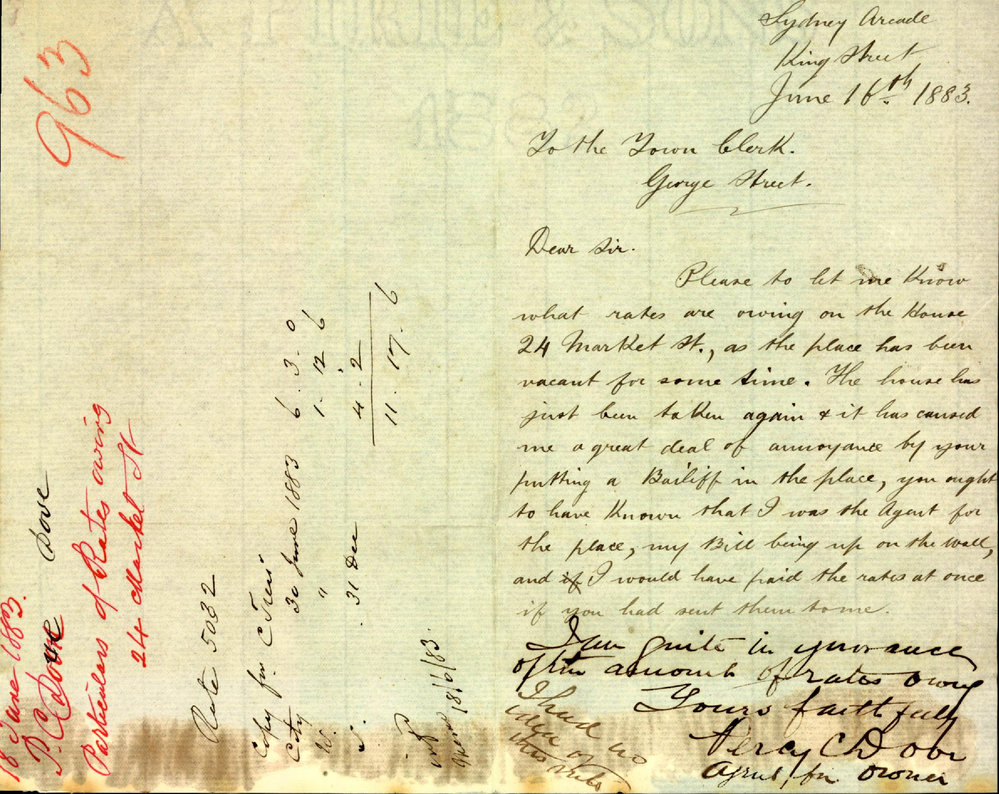 Sydney Arcade
King Street
June 16th 1883.
To the Town Clerk.
George Street.
Dear Sir.
Please to let me Know
what rates are owing on the House
24 Market St., as the place has been
vacant for some time. The house has
just been taken again & it has caused
me a great deal of annoyance by your
putting a Bailiff in the place, you ought
to have Known that I was the Agent for
the place, my Bill being up on the Wall,
and if I would have paid the rates at once
if you had sent them to me.
I am quite in ignorance
of the amount of rates owing
Yours faithfully
Percy C Dove
Agent for Owner
I had no
idea of
this
963
18 June 1883.
P. C. Dove Dove
Particulars of Rates owing
24 Market St
Rate 5032
Copy for C Treas
City 30 June 1883 6. 3. 0
W. " 1. 12. 6
31 Dec 4. 2
11. 17. 6
18/6/83.